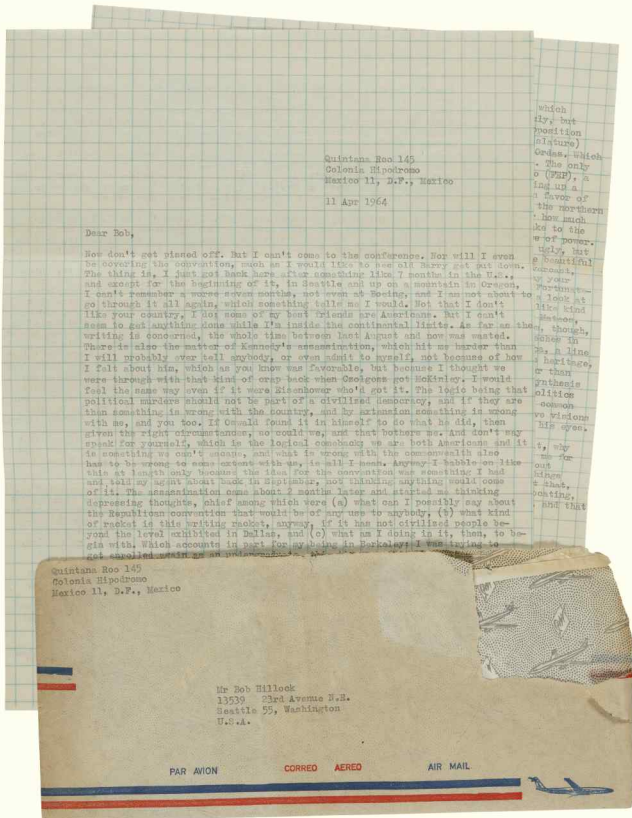 Quintana Roo 145
Colonia Hipodromo
Mexico 11, D.F., Mexico
11 Apr 1964
Dear Bob,
Now don't get pissed off. But I can't come to the conference. Nor will I even
be covering the convention, much as I would like to see old Barry get put down.
The thing is, I just got back here after something like 7 months in the U.S.,
and except for the beginning of it, in Seattle and up on a mountain in Oregon,
I can't remember a worse seven months, not even at Boeing, and I am not about to
go through it all again, which something tells me I would. Not that I don't
like your country, I do; some of my best friends are Americans. But I can't
seem to get anything done while I'm inside the continental limits. As far as the
writing is concerned, the whole time between last August and now was wasted.
There is also the matter of Kennedy's assassination, which hit me harder than
I will probably ever tell anybody, or even admit to myself, not because of how
I felt about him, which as you know was favorable, but because I thought we
were through with that kind of crap back when Czolgosz got McKinley. I would
feel the same way even if it were Eisenhower who'd got it. The logic being that
political murders should not be part of a civilized democracy, and if they are
then something is wrong with the country, and by extension something is wrong
with me, and you too. If Oswald found it in himself to do what he did, then
given the right circumstances, so could we, and that bothers me. And don't say
speak for yourself, which is the logical comeback; we are both Americans and it
is something we can't escape, and what is wrong with the commonwealth also
has to be wrong to some extent with us, is all I mean. Anyway I babble on like
this at length only because the idea for the convention was something I had
and told my agent about back in September, not thinking anything would come
of it. The assassination came about 2 months later and started me thinking
depressing thoughts, chief among which were (a) what can I possibly say about
the Republican convention that would be of any use to anybody, (b) what kind
of racket is this writing racket, anyway, if it has not civilized people be-
yond the level exhibited in Dallas, and (c) what am I doing in it, then, to be-
gin with. Which accounts in part for my being in Berkeley: I was trying to
get enrolled again as an
which
but
position
Ordaz. Which
The only
(FEP), a
ing up a
favor of
the northern
how much
to the
of power.
ugly, but
beautiful
your
look at
like kind
Watson,
though,
in
a line
heritage,
than
synthesis
politics
common
visions
his eyes.
why
me for
out
that,
and that
Quintana Roo 145
Colonia Hipodromo
Mexico 11, D.F., Mexico
Mr Bob Hillock
13539 23rd Avenue N.E.
Seattle 55, Washington
U.S.A.
PAR AVION CORREO AEREO AIR MAIL